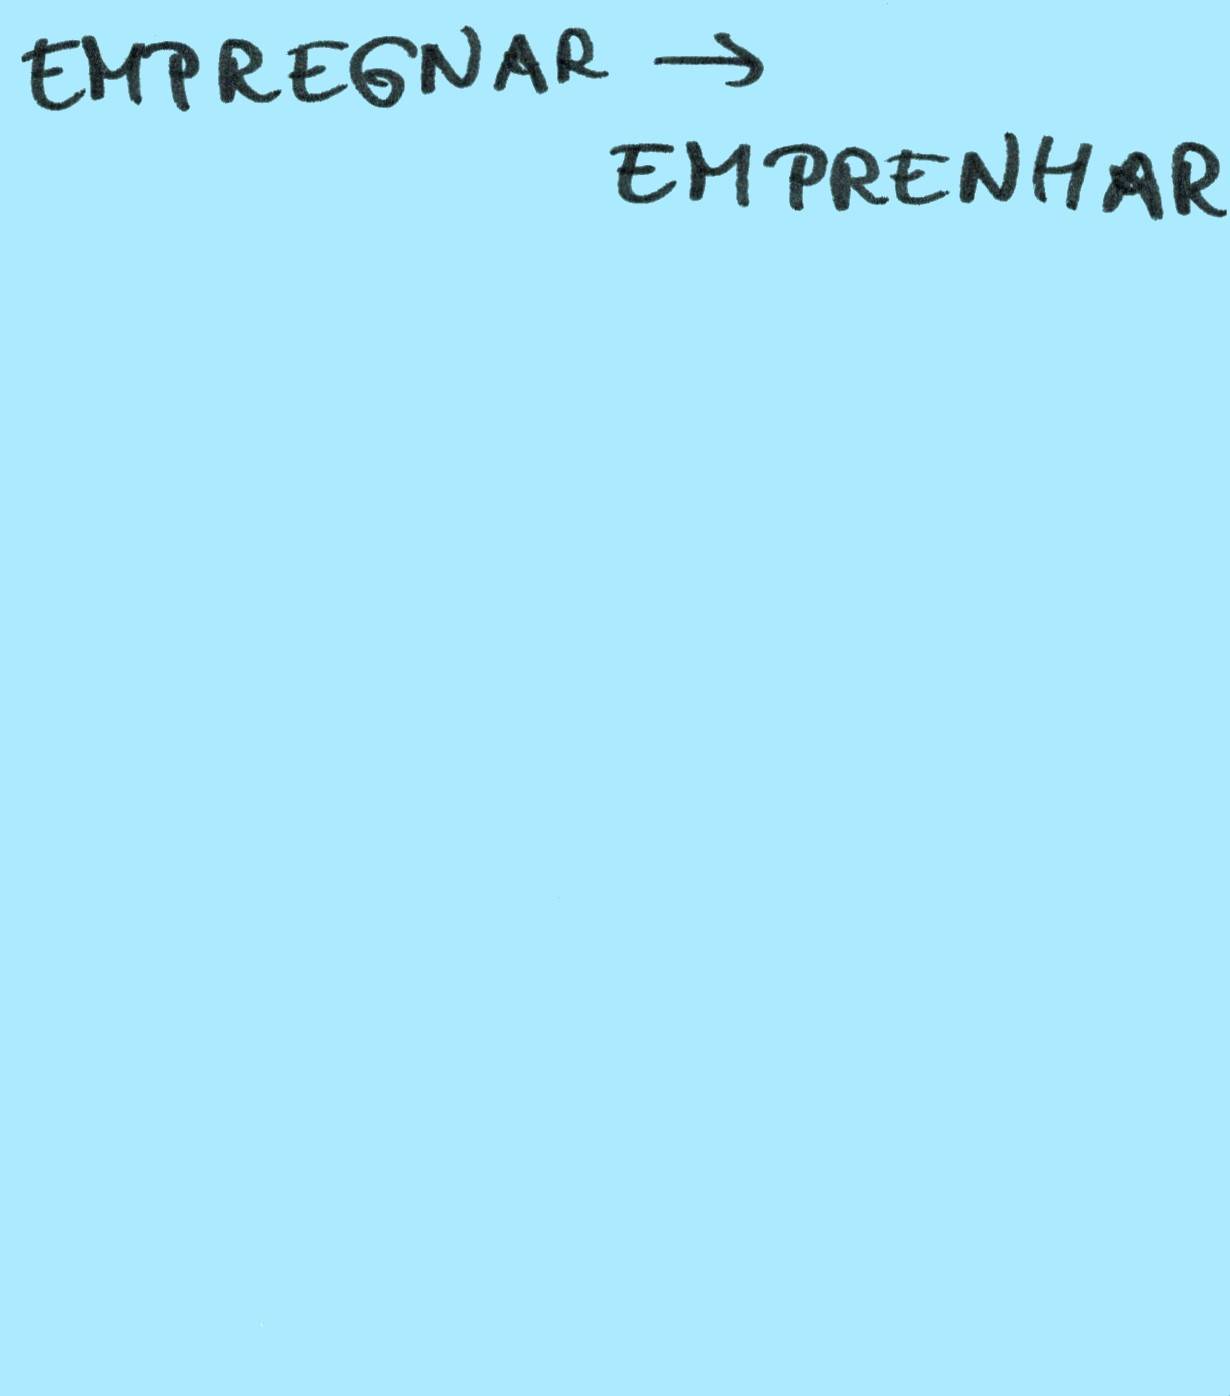 EMPREGNAR →
EMPRENHAR